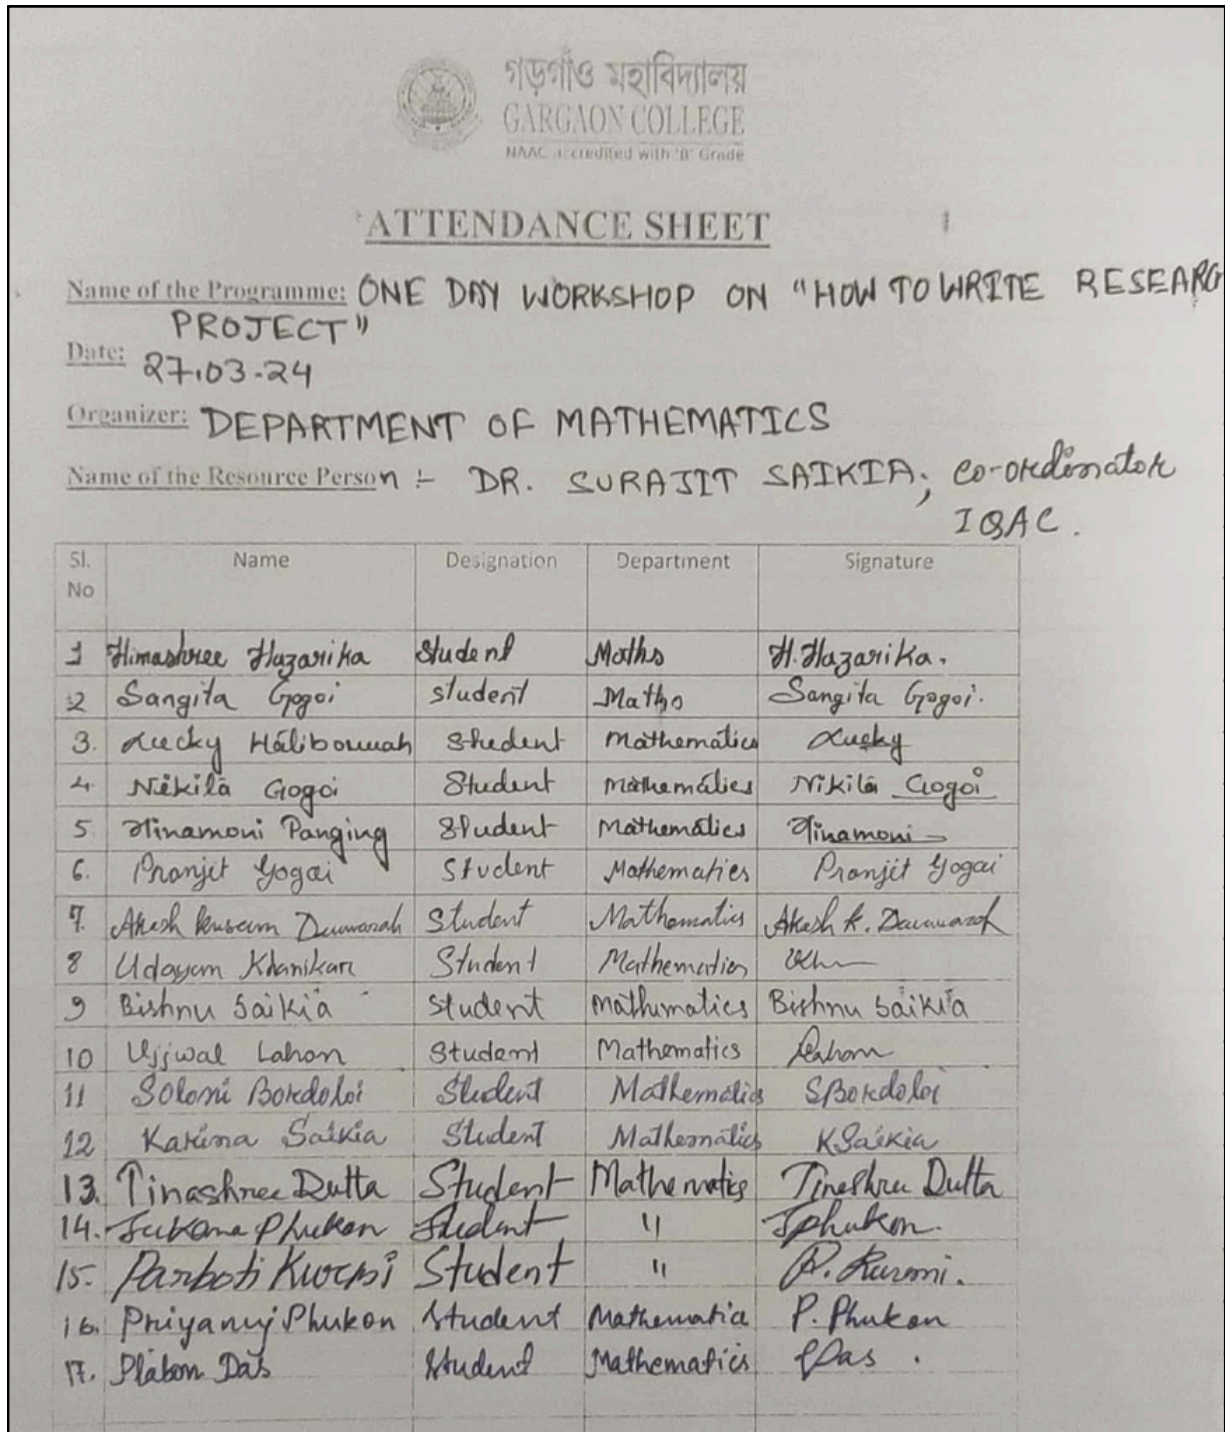 গড়গাঁও মহাবিদ্যালয়
GARGAON COLLEGE
NAAC accredited with 'B' Grade
ATTENDANCE SHEET
Name of the Programme: ONE DAY WORKSHOP ON "HOW TO WRITE RESEARC
PROJECT"
Date: 27.03-24
Organizer: DEPARTMENT OF MATHEMATICS
Name of the Resource Person :- DR. SURAJIT SAIKIA, co-ordinator
IQAC.
Sl. No Name Designation Department Signature
1 Himashree Hazarika Student Maths H. Hazarika.
2 Sangita Gogoi student Maths Sangita Gogoi.
3. Lucky Haliborruah Student Mathematics Lucky
4. Nikila Gogoi Student Mathematics Nikila Gogoi
5 Hinamoni Panging Student Mathematics Hinamoni
6. Pranjit Gogoi Student Mathematics Pranjit Gogoi
7. Akash Student Mathematics Akash K.
8 Udayan Khanikar Student Mathematics
9 Bishnu Saikia Student Mathematics Bishnu Saikia
10 Ujjwal Lahon Student Mathematics Lahon
11 Soloni Bordoloi Student Mathematics SBordoloi
12 Karina Saikia Student Mathematics KSaikia
13. Tinashree Dutta Student Mathematics Tinashree Dutta
14. Phukon Student " Phukon.
15. Parboti Kurmi Student " P. Kurmi.
16. Priyanuj Phukon Student Mathematics P. Phukon
17. Plabon Das Student Mathematics PDas.